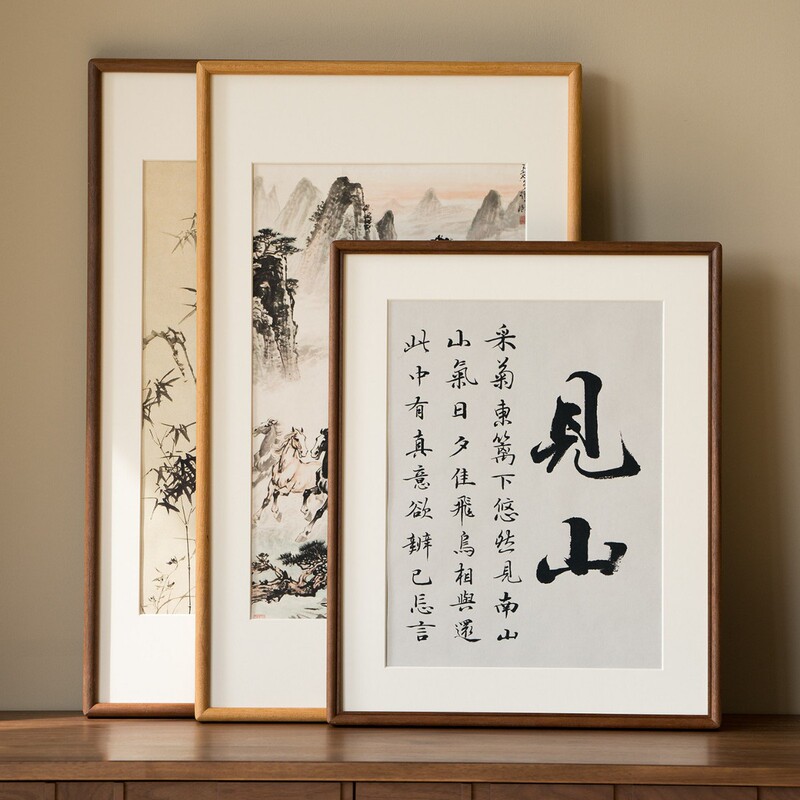 見山
采菊東籬下悠然見南山
山氣日夕佳飛鳥相與還
此中有真意欲辨已忘言